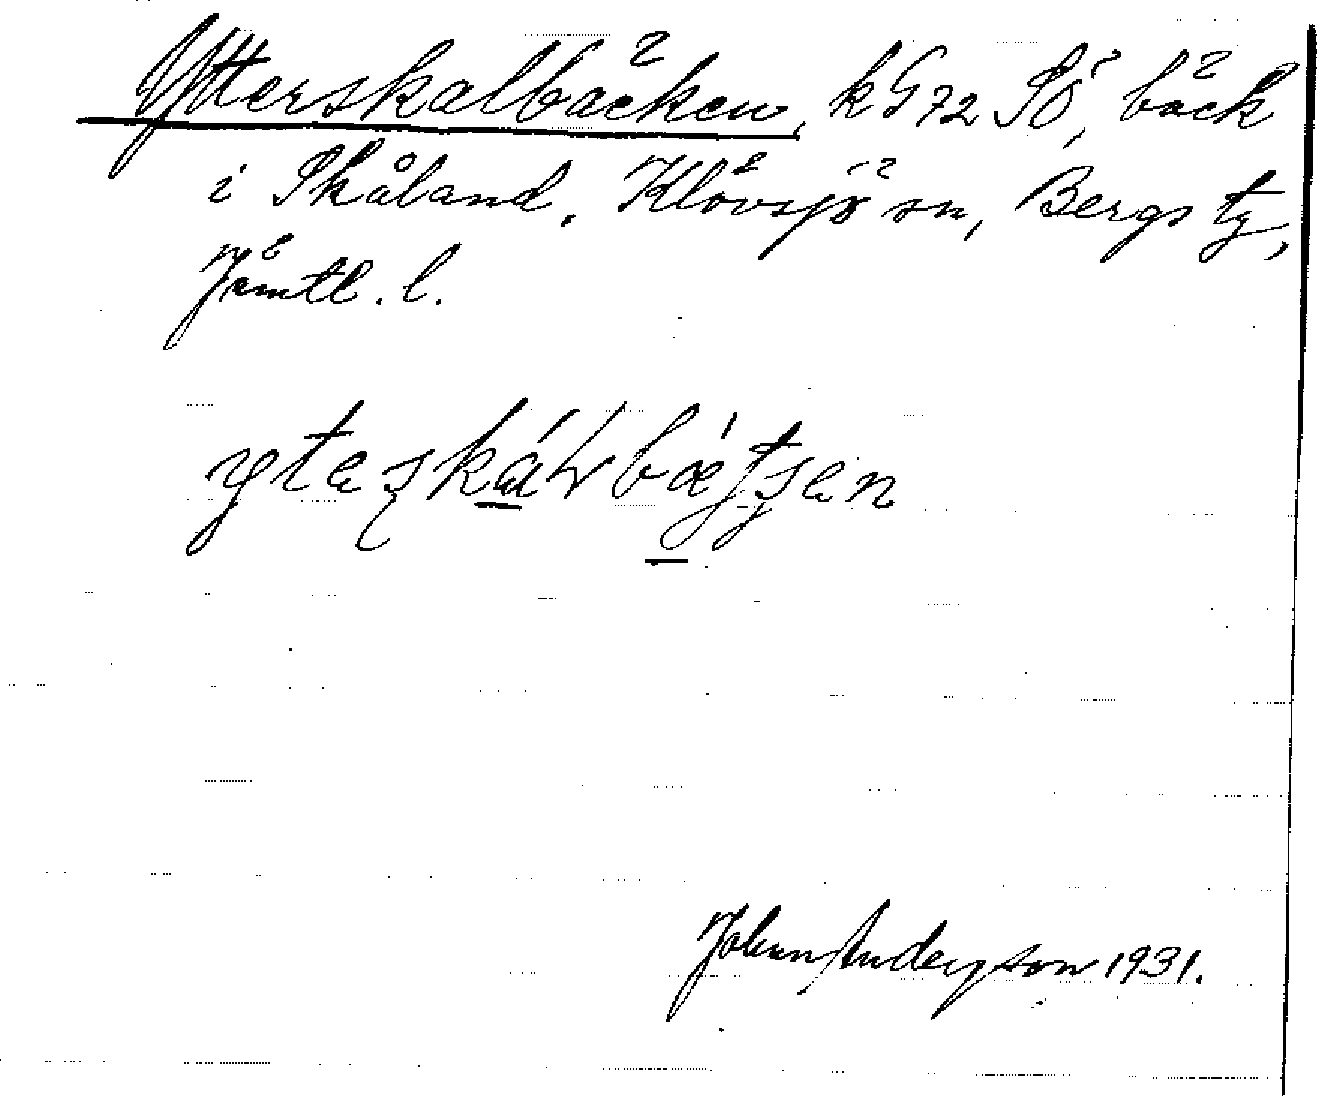 Ytterskalbäcken, kG72 SÖ, bäck
i Skåland, Klövsjö sn, Bergs tg,
Jämtl. l.
Johan Anderson 1931.